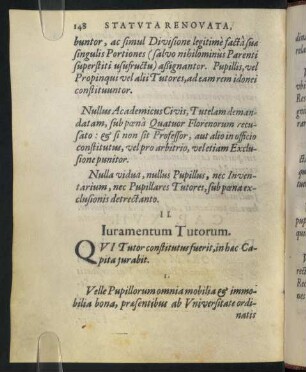 148 STATVTA RENOVATA,
buntor, ac simul Divisione legitimè factâ suæ
singulis Portiones (salvo nibilominus Parenti
superstiti usufructu) assignantor. Pupillis, vel
Propinqui vel alii Tutores, ad eam rem idonei
constituuntor.
Nullus Academicus Civis, Tutelam deman-
datam, sub pœnâ Quatuor Florenorum recu-
sato: & si non sit Professor, aut alio in officio
constitutus, vel pro arbitrio, vel etiam Exclu-
sione punitor.
Nulla vidua, nullus Pupillus, nec Inven-
tarium, nec Pupillares Tutores, sub pœna ex-
clusionis detrectanto.
II.
Iuramentum Tutorum.
QVI Tutor constitutus fuerit, in hac Ca-
pita jurabit.
1.
Velle Pupillorum omnia mobilia & immo-
bilia bona, præsentibus ab Vniversitate ordi-
natis